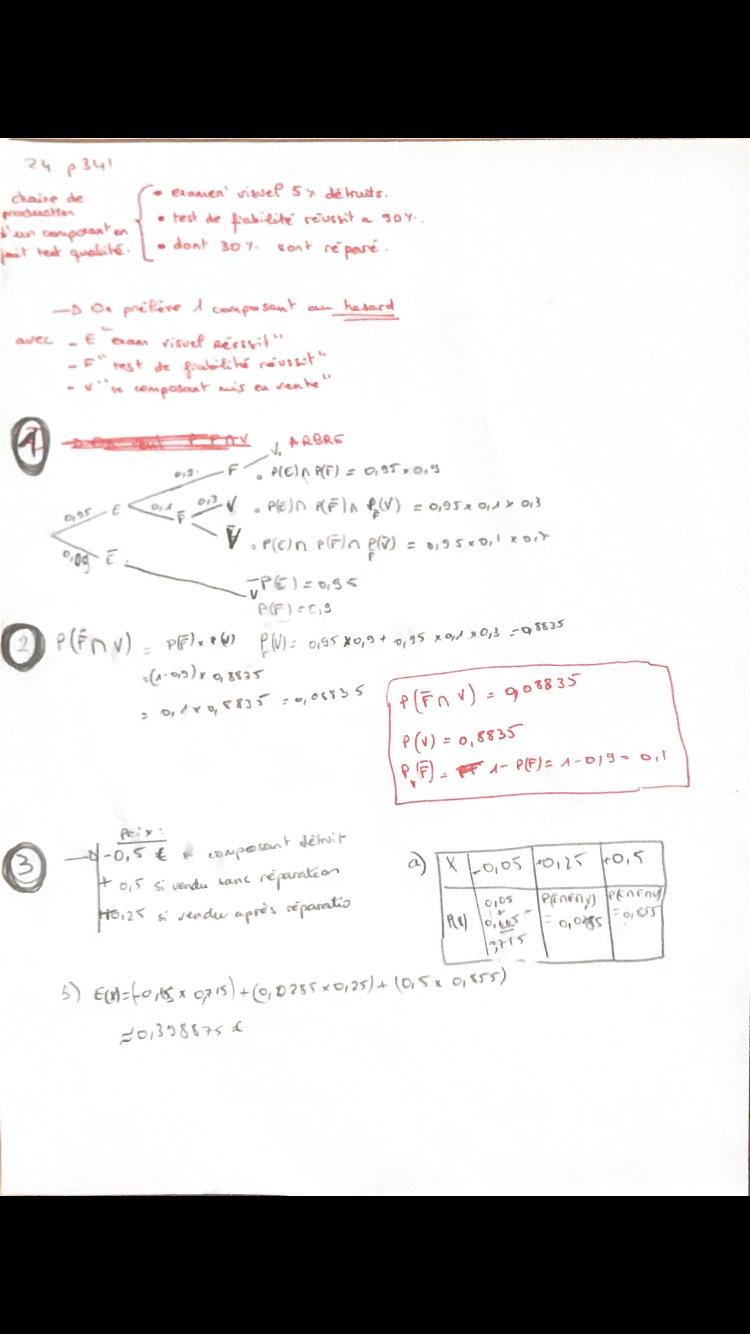 24 p 341
chaine de production d'un composant on fait test qualité.
• examen visuel 5% détruits.
• test de fiabilité réussit a 90%.
• dont 30% sont réparé.
→ On prélève 1 composant au hasard
avec - E "exam visuel réussit"
- F "test de fiabilité réussit"
- V "le composant mis en vente"
1
ARBRE
0,95 E 0,9 F V
0,1 F̄ 0,3 V
V̄
0,05 Ē
• P(E)∩ P(F) = 0,95 x 0,9
• P(E)∩ P(F̄)∩ P_F̄(V) = 0,95 x 0,1 x 0,3
• P(E)∩ P(F̄)∩ P_F̄(V̄) = 0,95 x 0,1 x 0,7
P(E) = 0,95
P(F) = 0,9
2 P(F̄∩V) = P(F̄) x P(V) P(V) = 0,95 x 0,9 + 0,95 x 0,1 x 0,3 = 0,8835
= (1-0,9) x 0,8835
= 0,1 x 0,8835 = 0,08835
P(F̄∩V) = 0,08835
P(V) = 0,8835
P_V(F̄) = 1 - P(F) = 1 - 0,9 = 0,1
3 Prix :
→ -0,5 € composant détruit
+ 0,5 si vendu sans réparation
+0,25 si vendu après réparatio
a) X -0,05 +0,25 +0,5
P(X) 0,05 P(E∩F̄∩V) = 0,0285 P(E∩F∩V) = 0,855
b) E(X) = (-0,05 x 0,715) + (0,0285 x 0,25) + (0,5 x 0,855)
≈ 0,398875 €